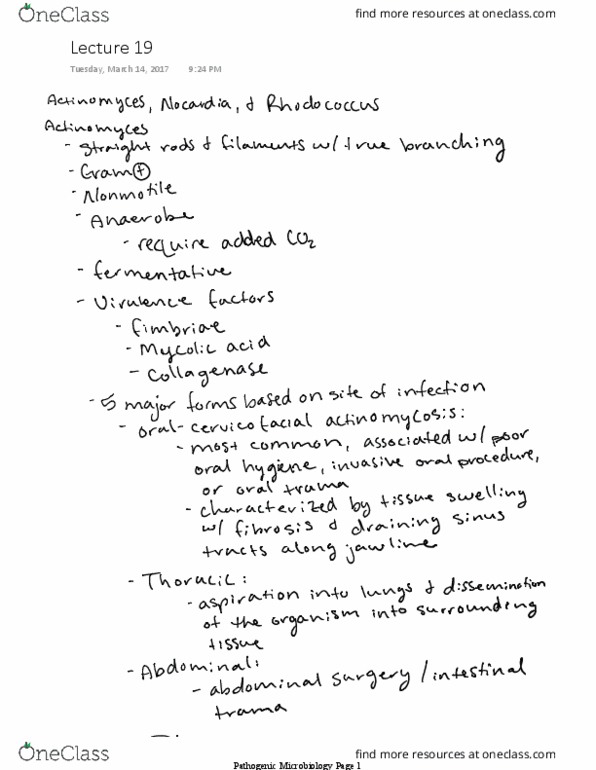 OneClass
find more resources at oneclass.com
Lecture 19
Tuesday, March 14, 2017 9:24 PM
Actinomyces, Nocardia, & Rhodococcus
Actinomyces
- Straight rods & filaments w/ true branching
- Gram ⊕
- Nonmotile
- Anaerobe
- require added CO₂
- fermentative
- Virulence factors
- fimbriae
- Mycolic acid
- Collagenase
- 5 major forms based on site of infection
- oral-cervicofacial actinomycosis:
- most common, associated w/ poor
oral hygiene, invasive oral procedure,
or oral trama
- characterized by tissue swelling
w/ fibrosis & draining sinus
tracts along jawline
- Thoracic:
- aspiration into lungs & dissemination
of the organism into surrounding
tissue
- Abdominal:
- abdominal surgery / intestinal
trama
OneClass
find more resources at oneclass.com
Pathogenic Microbiology Page 1